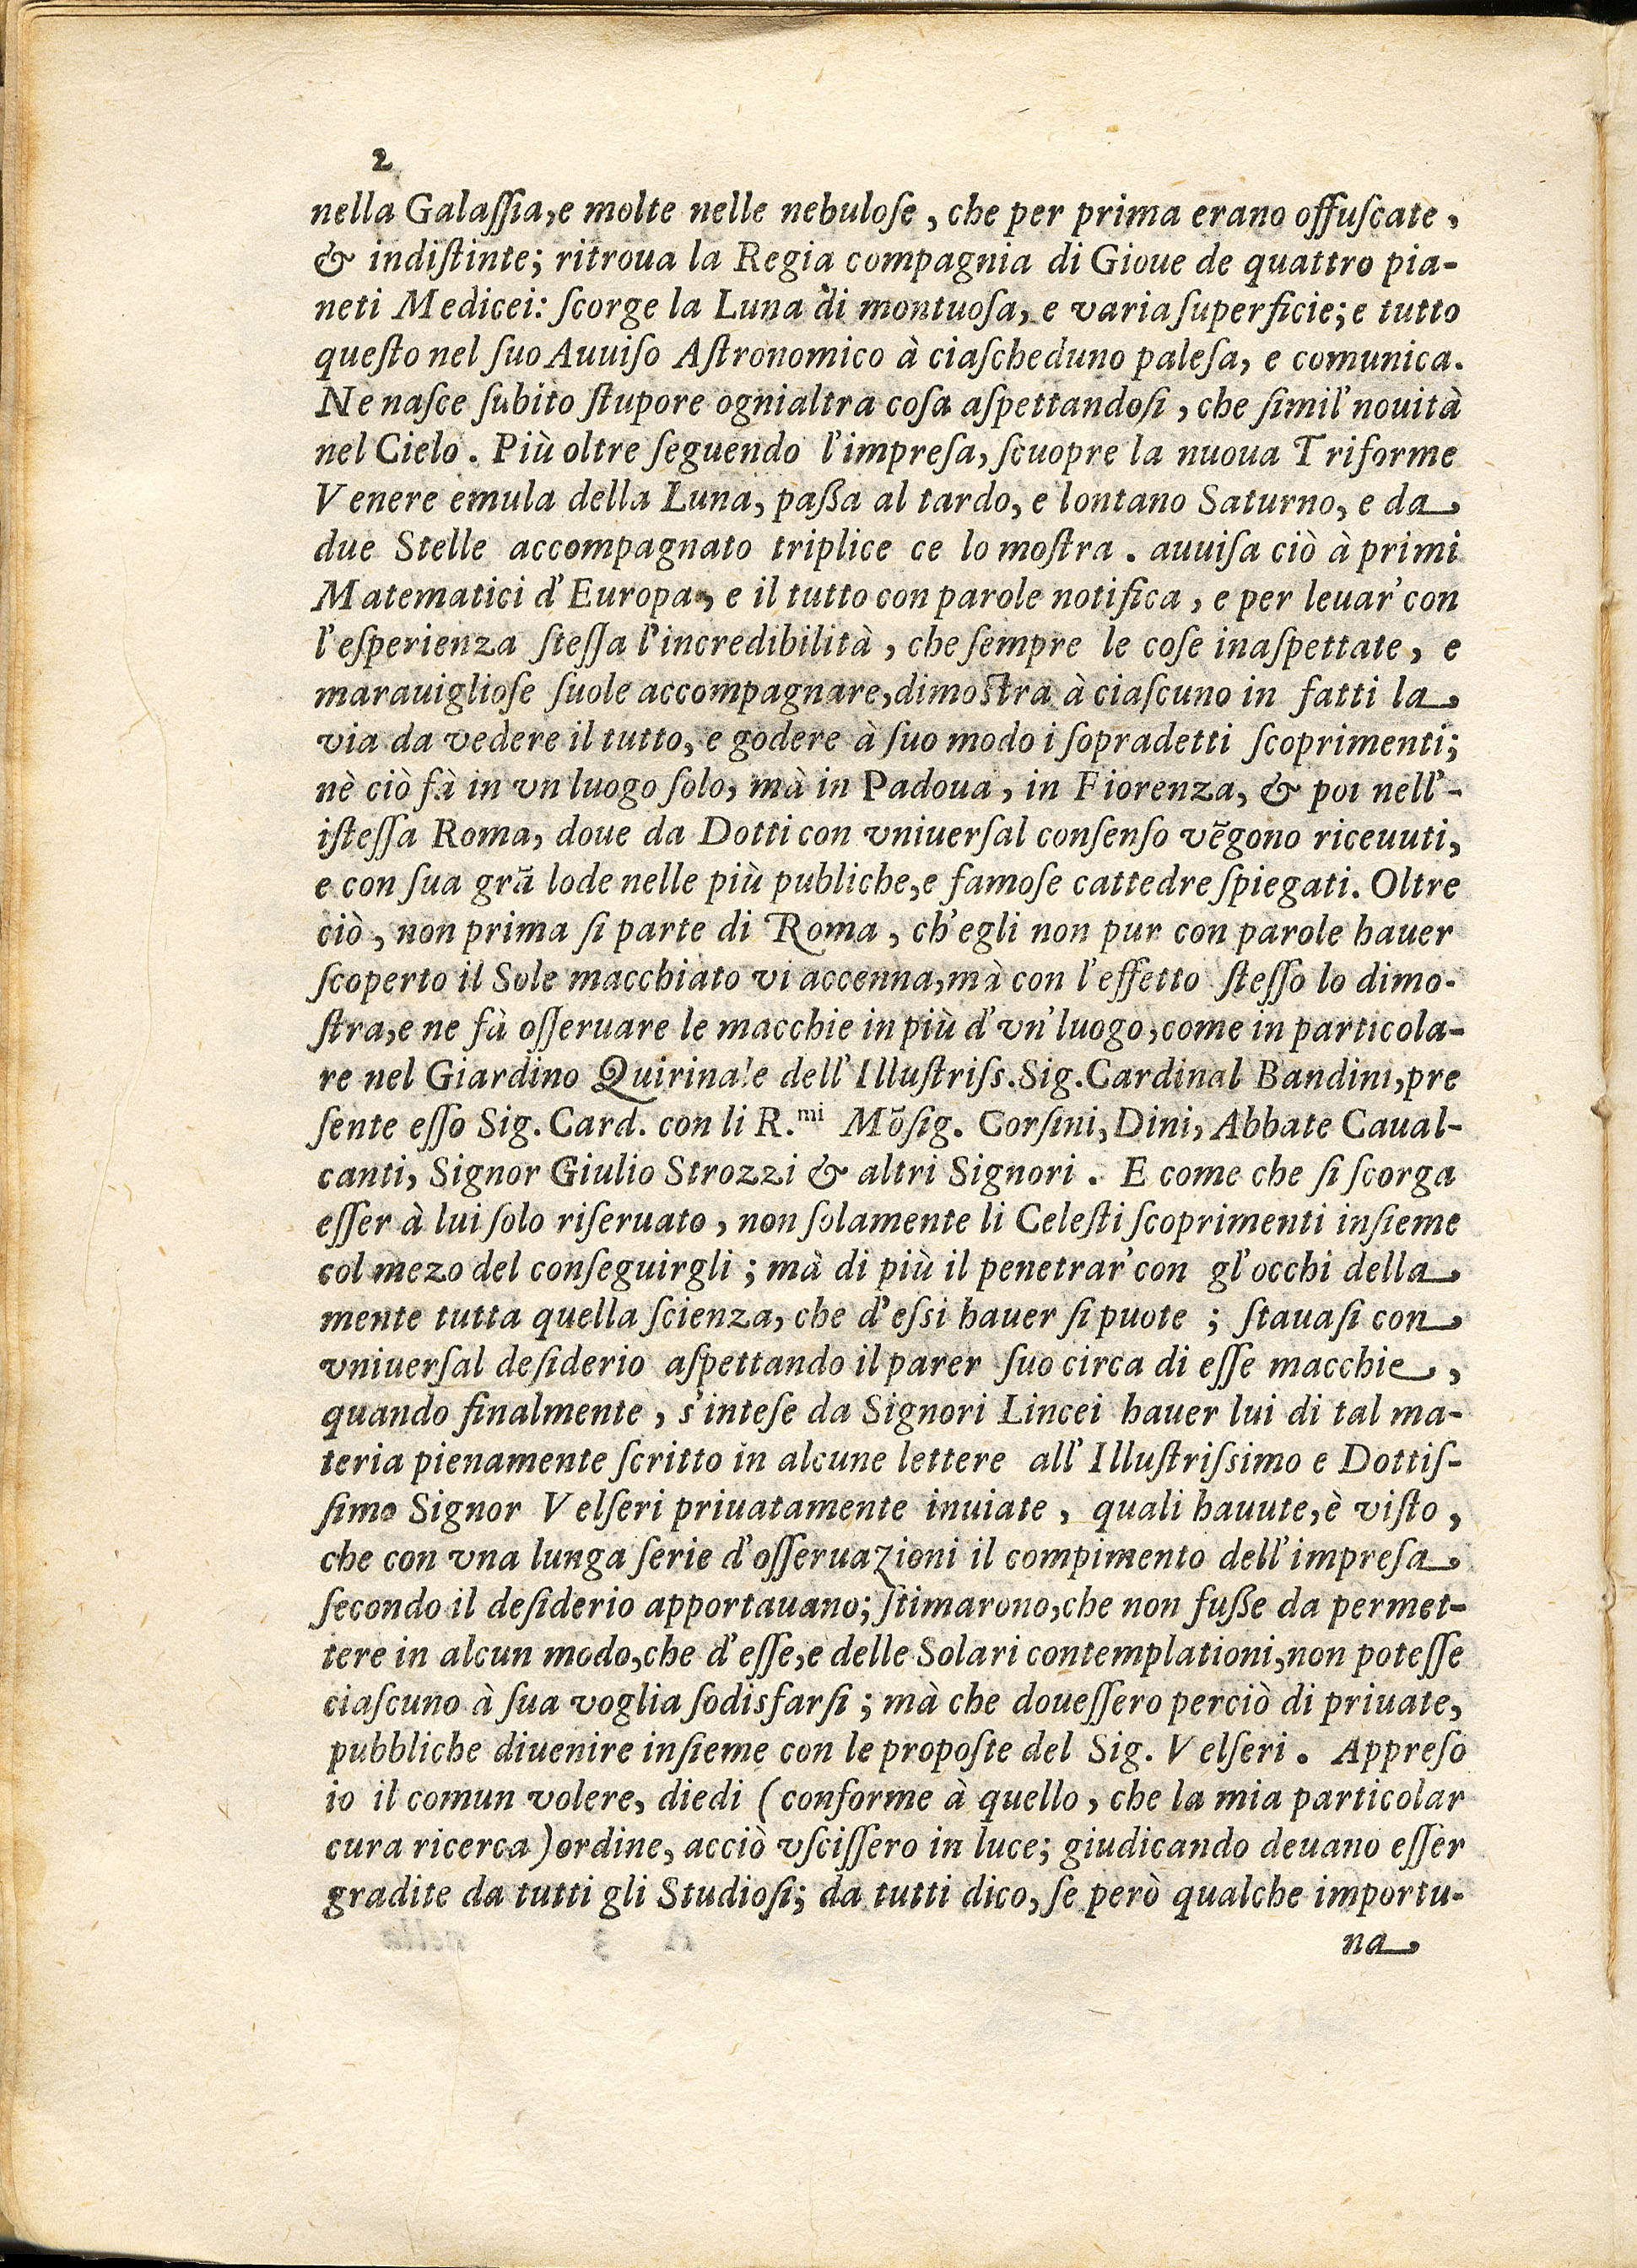 2
nella Galaſſia, e molte nelle nebuloſe, che per prima erano offuſcate,
& indiſtinte; ritroua la Regia compagnia di Gioue de quattro pia-
neti Medicei: ſcorge la Luna di montuoſa, e varia ſuperficie; e tutto
queſto nel ſuo Auuiſo Aſtronomico à ciaſcheduno paleſa, e comunica.
Ne naſce ſubito ſtupore ognialtra coſa aſpettandoſi, che ſimil' nouità
nel Cielo. Più oltre ſeguendo l'impreſa, ſcuopre la nuoua Triforme
Venere emula della Luna, paßa al tardo, e lontano Saturno, e da
due Stelle accompagnato triplice ce lo moſtra. auuiſa ciò à primi
Matematici d'Europa, e il tutto con parole notifica, e per leuar' con
l'eſperienza ſteſſa l'incredibilità, che ſempre le coſe inaſpettate, e
marauiglioſe ſuole accompagnare, dimoſtra à ciaſcuno in fatti la
via da vedere il tutto, e godere à ſuo modo i ſopradetti ſcoprimenti;
nè ciò fà in vn luogo ſolo, mà in Padoua, in Fiorenza, & poi nell'-
iſteſſa Roma, doue da Dotti con vniuerſal conſenſo vẽgono riceuuti,
e con ſua grã lode nelle più publiche, e famoſe cattedre ſpiegati. Oltre
ciò, non prima ſi parte di Roma, ch'egli non pur con parole hauer
ſcoperto il Sole macchiato vi accenna, mà con l'effetto ſteſſo lo dimo-
ſtra, e ne fà oſſeruare le macchie in più d'vn' luogo, come in particola-
re nel Giardino Quirinale dell'Illuſtriſs. Sig. Cardinal Bandini, pre
ſente eſſo Sig. Card. con li R.mi Mõſig. Corſini, Dini, Abbate Caual-
canti, Signor Giulio Strozzi & altri Signori. E come che ſi ſcorga
eſſer à lui ſolo riſeruato, non ſolamente li Celeſti ſcoprimenti inſieme
col mezo del conſeguirgli; mà di più il penetrar' con gl'occhi della
mente tutta quella ſcienza, che d'eſsi hauer ſi puote; ſtauaſi con
vniuerſal deſiderio aſpettando il parer ſuo circa di eſſe macchie,
quando finalmente, s'inteſe da Signori Lincei hauer lui di tal ma-
teria pienamente ſcritto in alcune lettere all'Illuſtriſsimo e Dottiſ-
ſimo Signor Velſeri priuatamente inuiate, quali hauute, è viſto,
che con vna lunga ſerie d'oſſeruazioni il compimento dell'impreſa
ſecondo il deſiderio apportauano; ſtimarono, che non fuße da permet-
tere in alcun modo, che d'eſſe, e delle Solari contemplationi, non poteſſe
ciaſcuno à ſua voglia ſodisfarſi; mà che doueſſero perciò di priuate,
pubbliche diuenire inſieme con le propoſte del Sig. Velſeri. Appreſo
io il comun volere, diedi (conforme à quello, che la mia particolar
cura ricerca) ordine, acciò vſciſſero in luce; giudicando deuano eſſer
gradite da tutti gli Studioſi; da tutti dico, ſe però qualche importu-
na